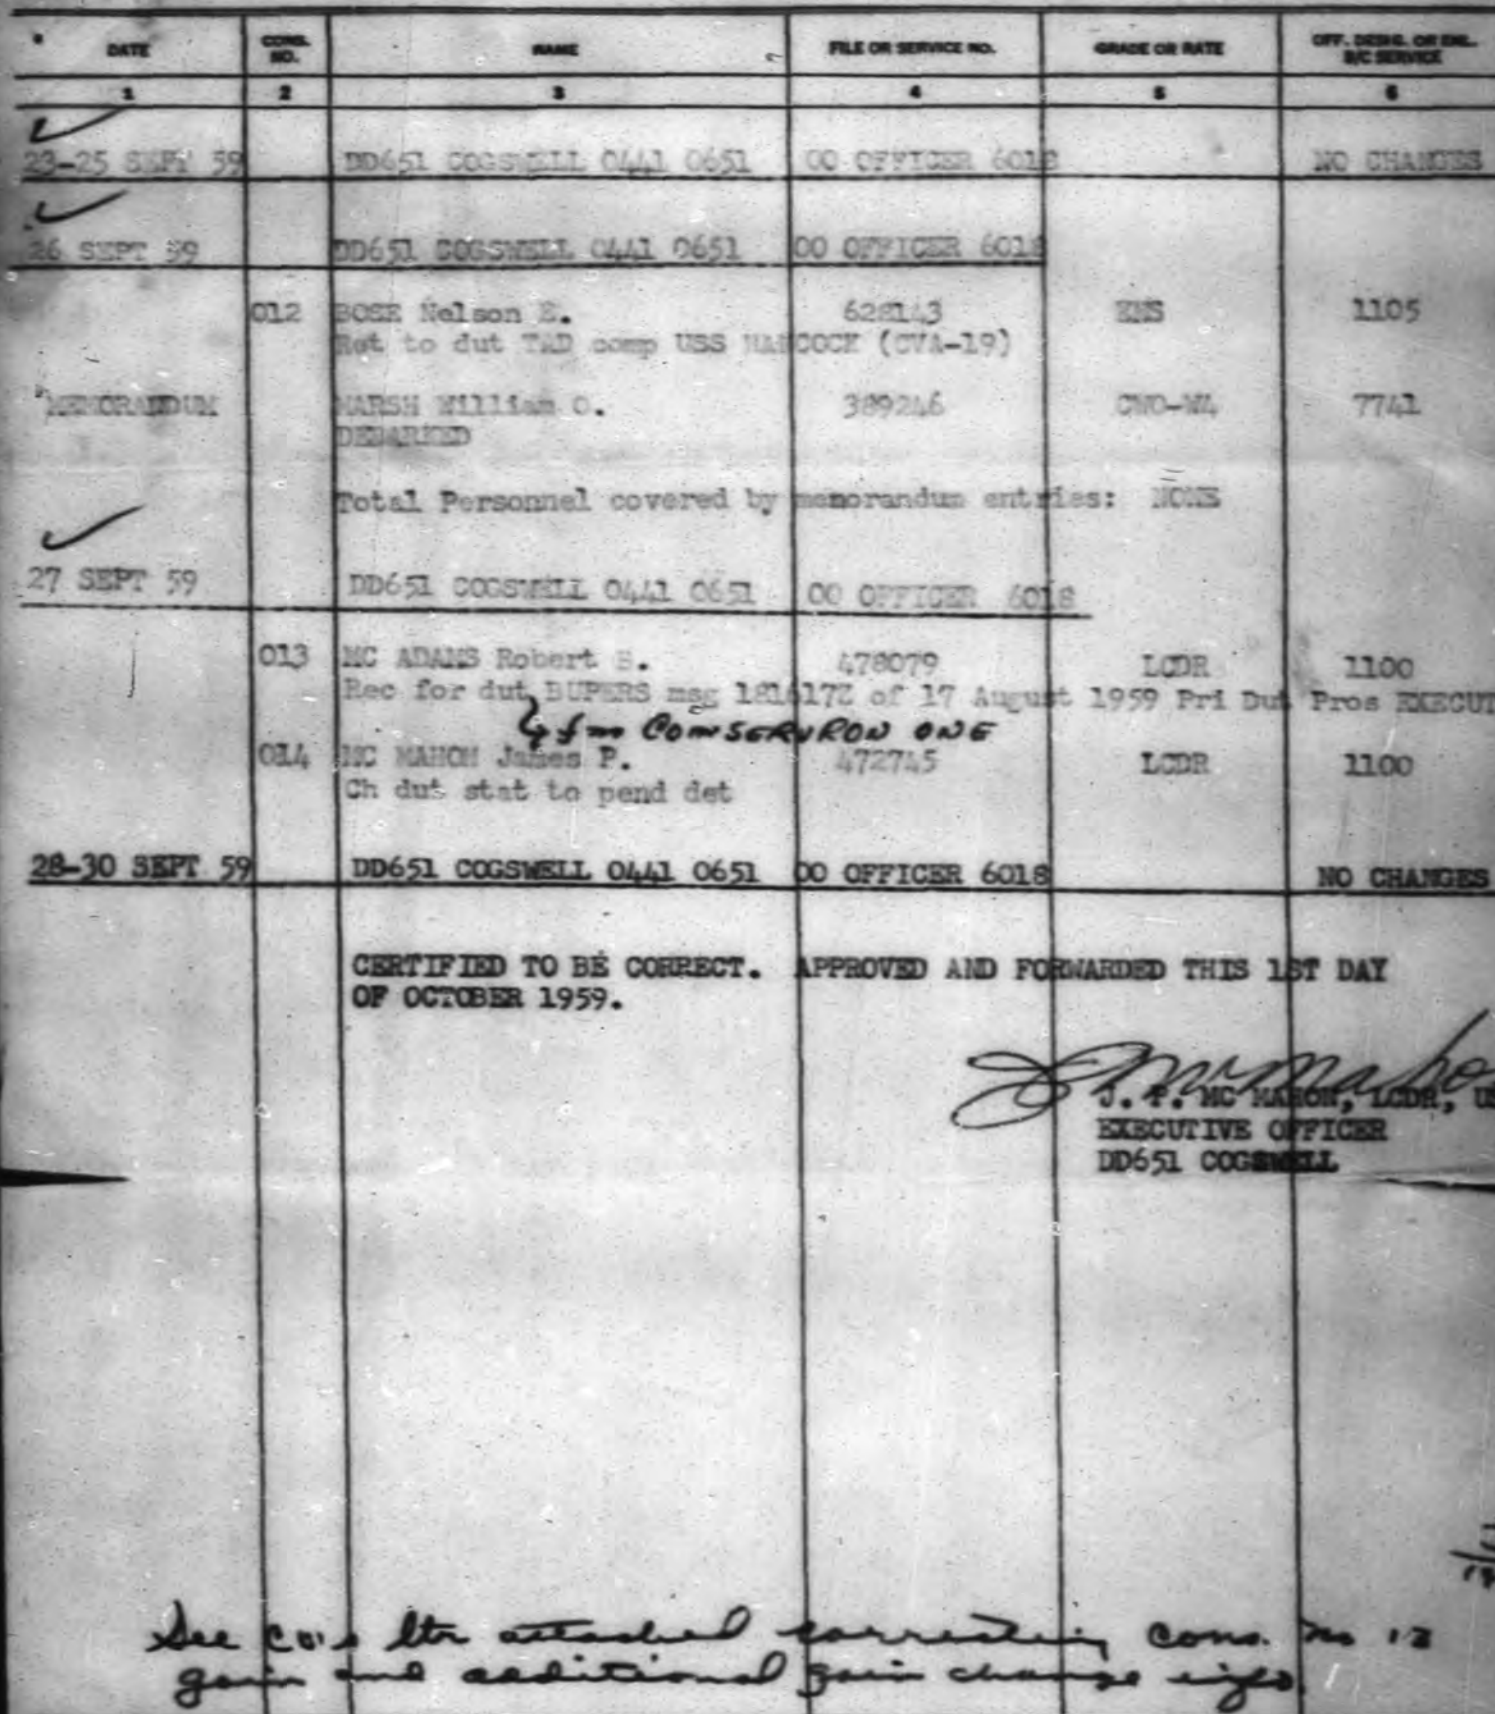 DATE CONS. NO. NAME FILE OR SERVICE NO. GRADE OR RATE OFF. DESIG. OR ENL. B/C SERVICE
1 2 3 4 5 6
23-25 SEPT 59 DD651 COGSWELL 0441 0651 00 OFFICER 6018 NO CHANGES
26 SEPT 59 DD651 COGSWELL 0441 0651 00 OFFICER 6018
012 BOSE Nelson E. 628143 ENS 1105
Ret to dut TAD comp USS HANCOCK (CVA-19)
MEMORANDUM MARSH William O. 389246 CWO-W4 7741
DEBARKED
Total Personnel covered by memorandum entries: NONE
27 SEPT 59 DD651 COGSWELL 0441 0651 00 OFFICER 6018
013 MC ADAMS Robert 478079 LCDR 1100
Rec for dut BUPERS msg 181617Z of 17 August 1959 Pri Dut Pros EXECUT
fm COMSERVRON ONE
014 MC MAHON James P. 472745 LCDR 1100
Ch dut stat to pend det
28-30 SEPT 59 DD651 COGSWELL 0441 0651 00 OFFICER 6018 NO CHANGES
CERTIFIED TO BE CORRECT. APPROVED AND FORWARDED THIS 1ST DAY
OF OCTOBER 1959.
J. P. MC MAHON, LCDR, US
EXECUTIVE OFFICER
DD651 COGSWELL
See co's ltr attached correcting cons. no 12
gain and additional gain change info